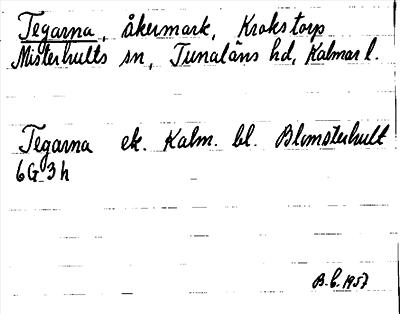 Tegarna, åkermark, Krokstorp
Misterhults sn, Tunaläns hd, Kalmar l.
Tegarna ek. Kalm. bl. Blomsterhult
6G 3h
B.C. 1957